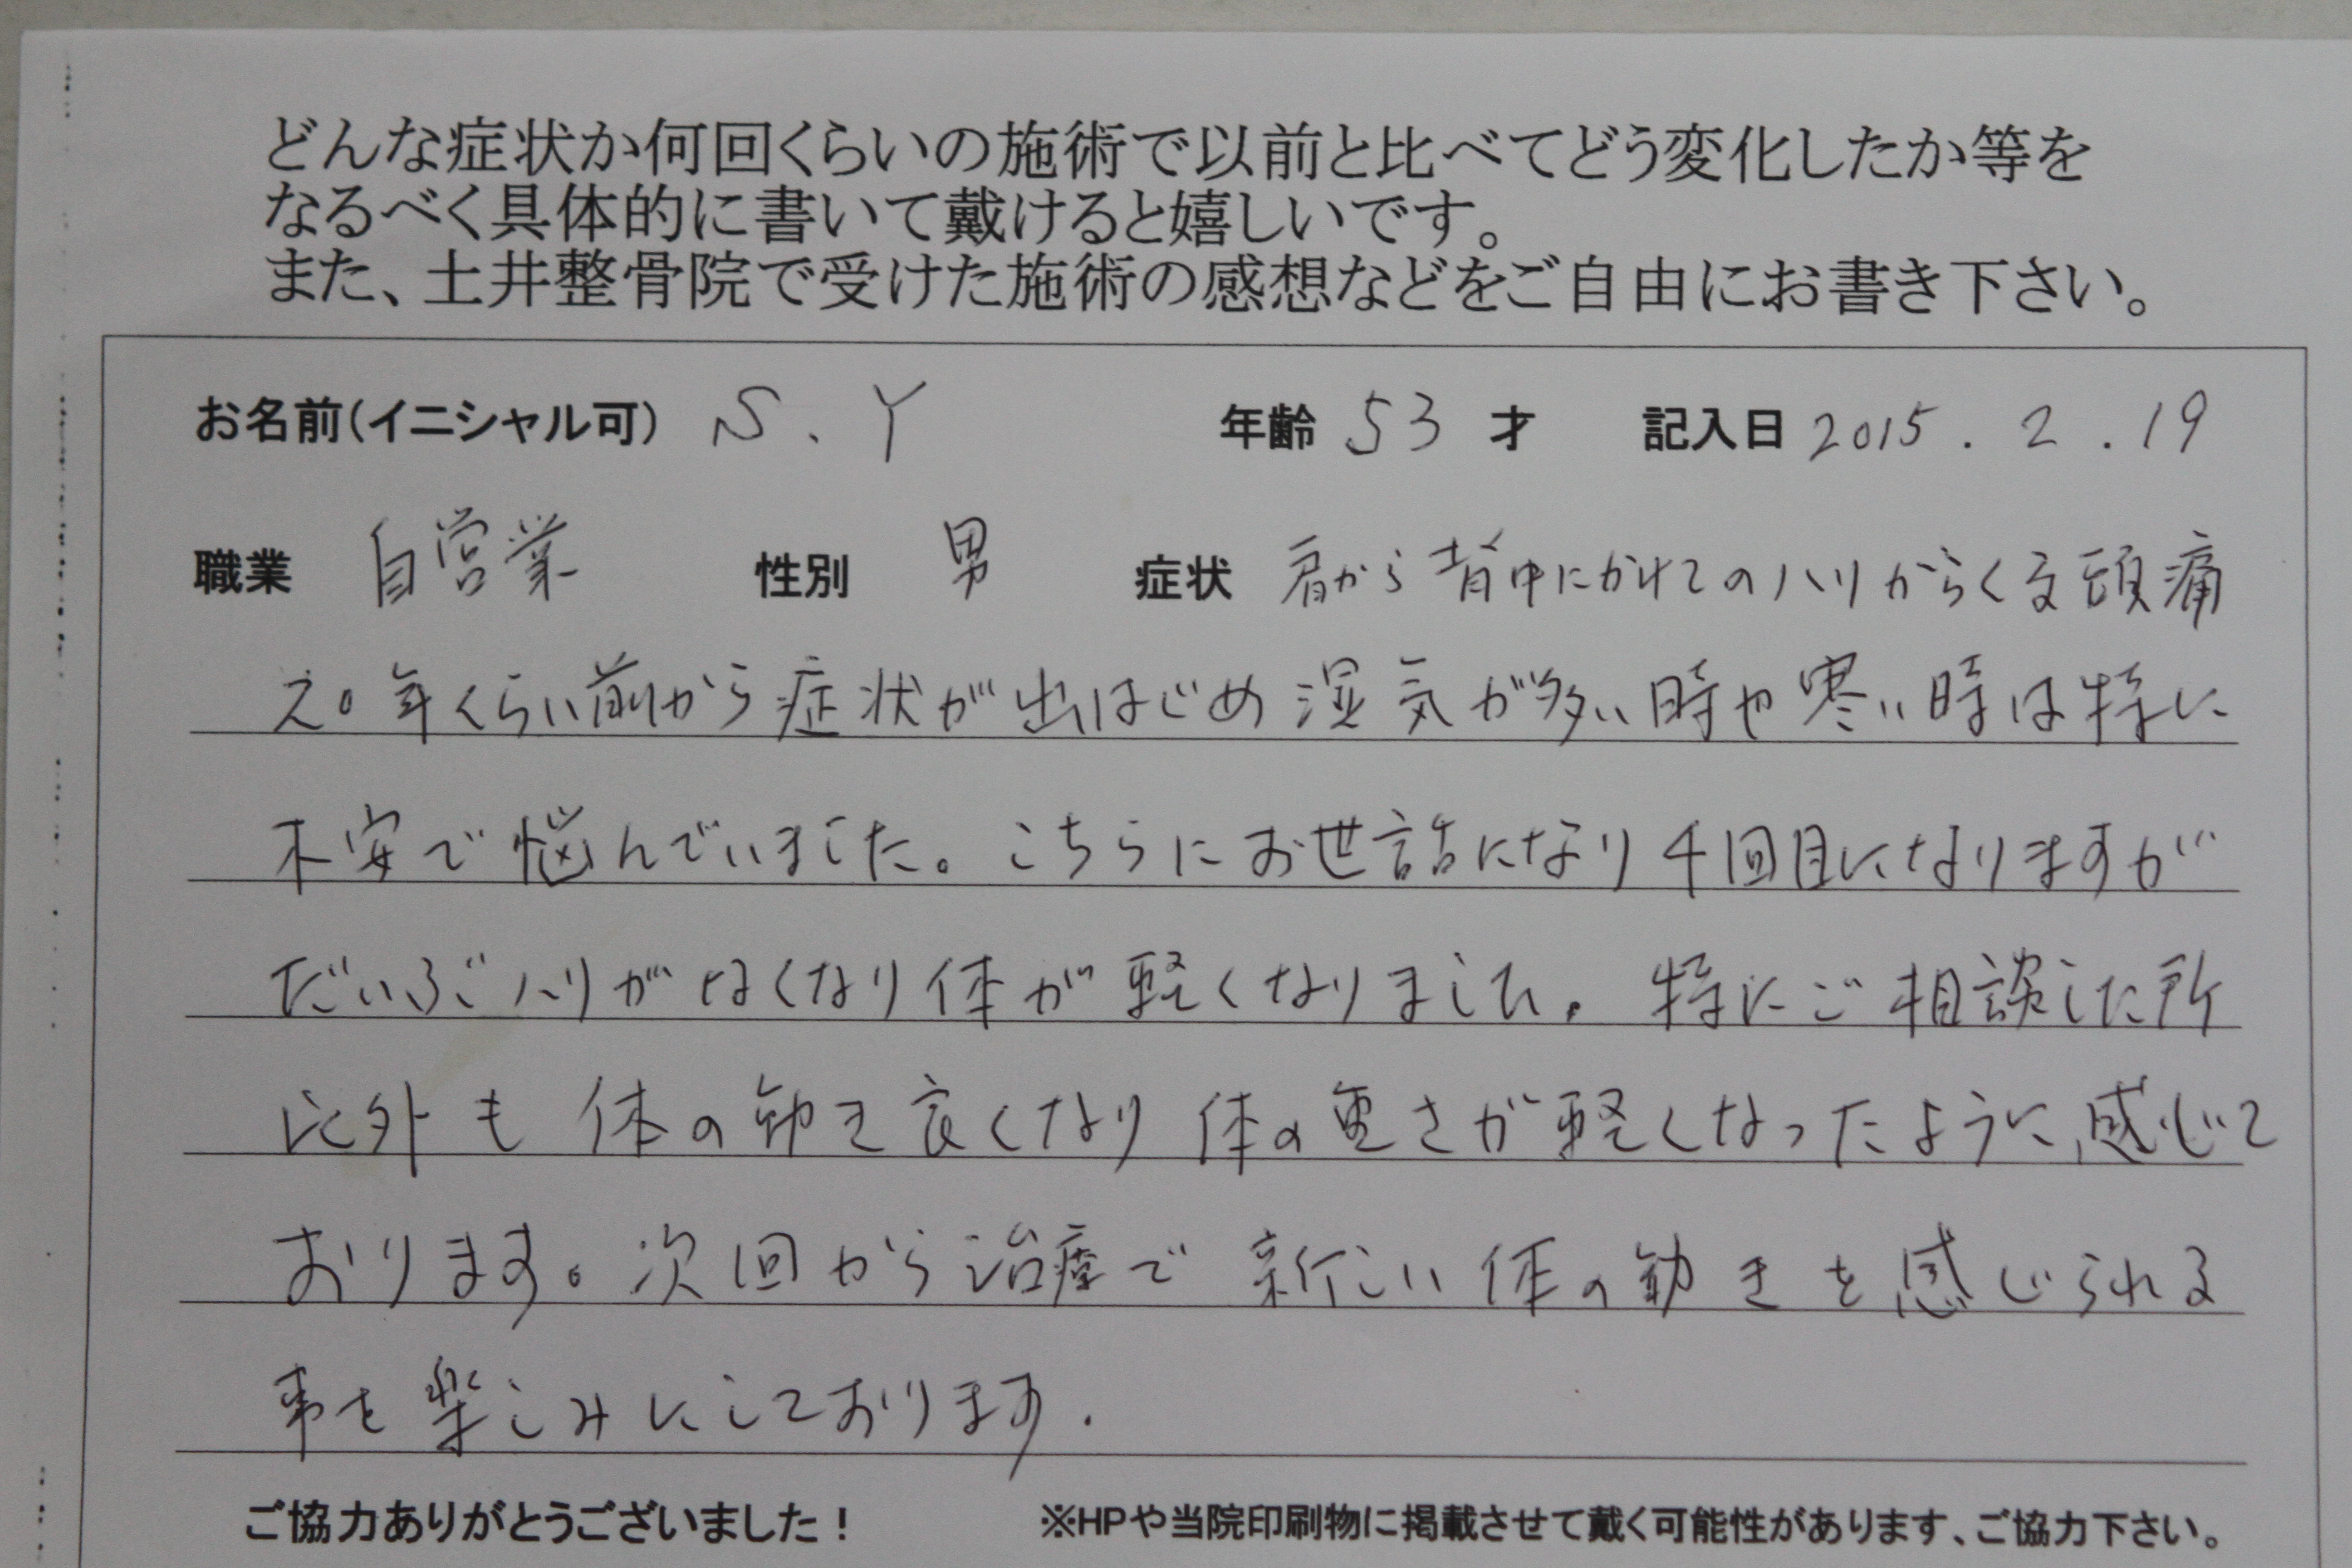 どんな症状か何回くらいの施術で以前と比べてどう変化したか等を
なるべく具体的に書いて戴けると嬉しいです。
また、土井整骨院で受けた施術の感想などをご自由にお書き下さい。
お名前(イニシャル可) S.Y 年齢 53 才 記入日 2015.2.19
職業 自営業 性別 男 症状 肩から背中にかけてのハリからくる頭痛
20年くらい前から症状が出はじめ湿気が多い時や寒い時は特に
不安で悩んでいました。こちらにお世話になり4回目になりますが
だいぶハリがなくなり体が軽くなりました。特にご相談した所
以外も体の動き良くなり体の重さが軽くなったように感じて
おります。次回から治療で新しい体の動きを感じられる
事を楽しみにしております.
ご協力ありがとうございました！ ※HPや当院印刷物に掲載させて戴く可能性があります、ご協力下さい。